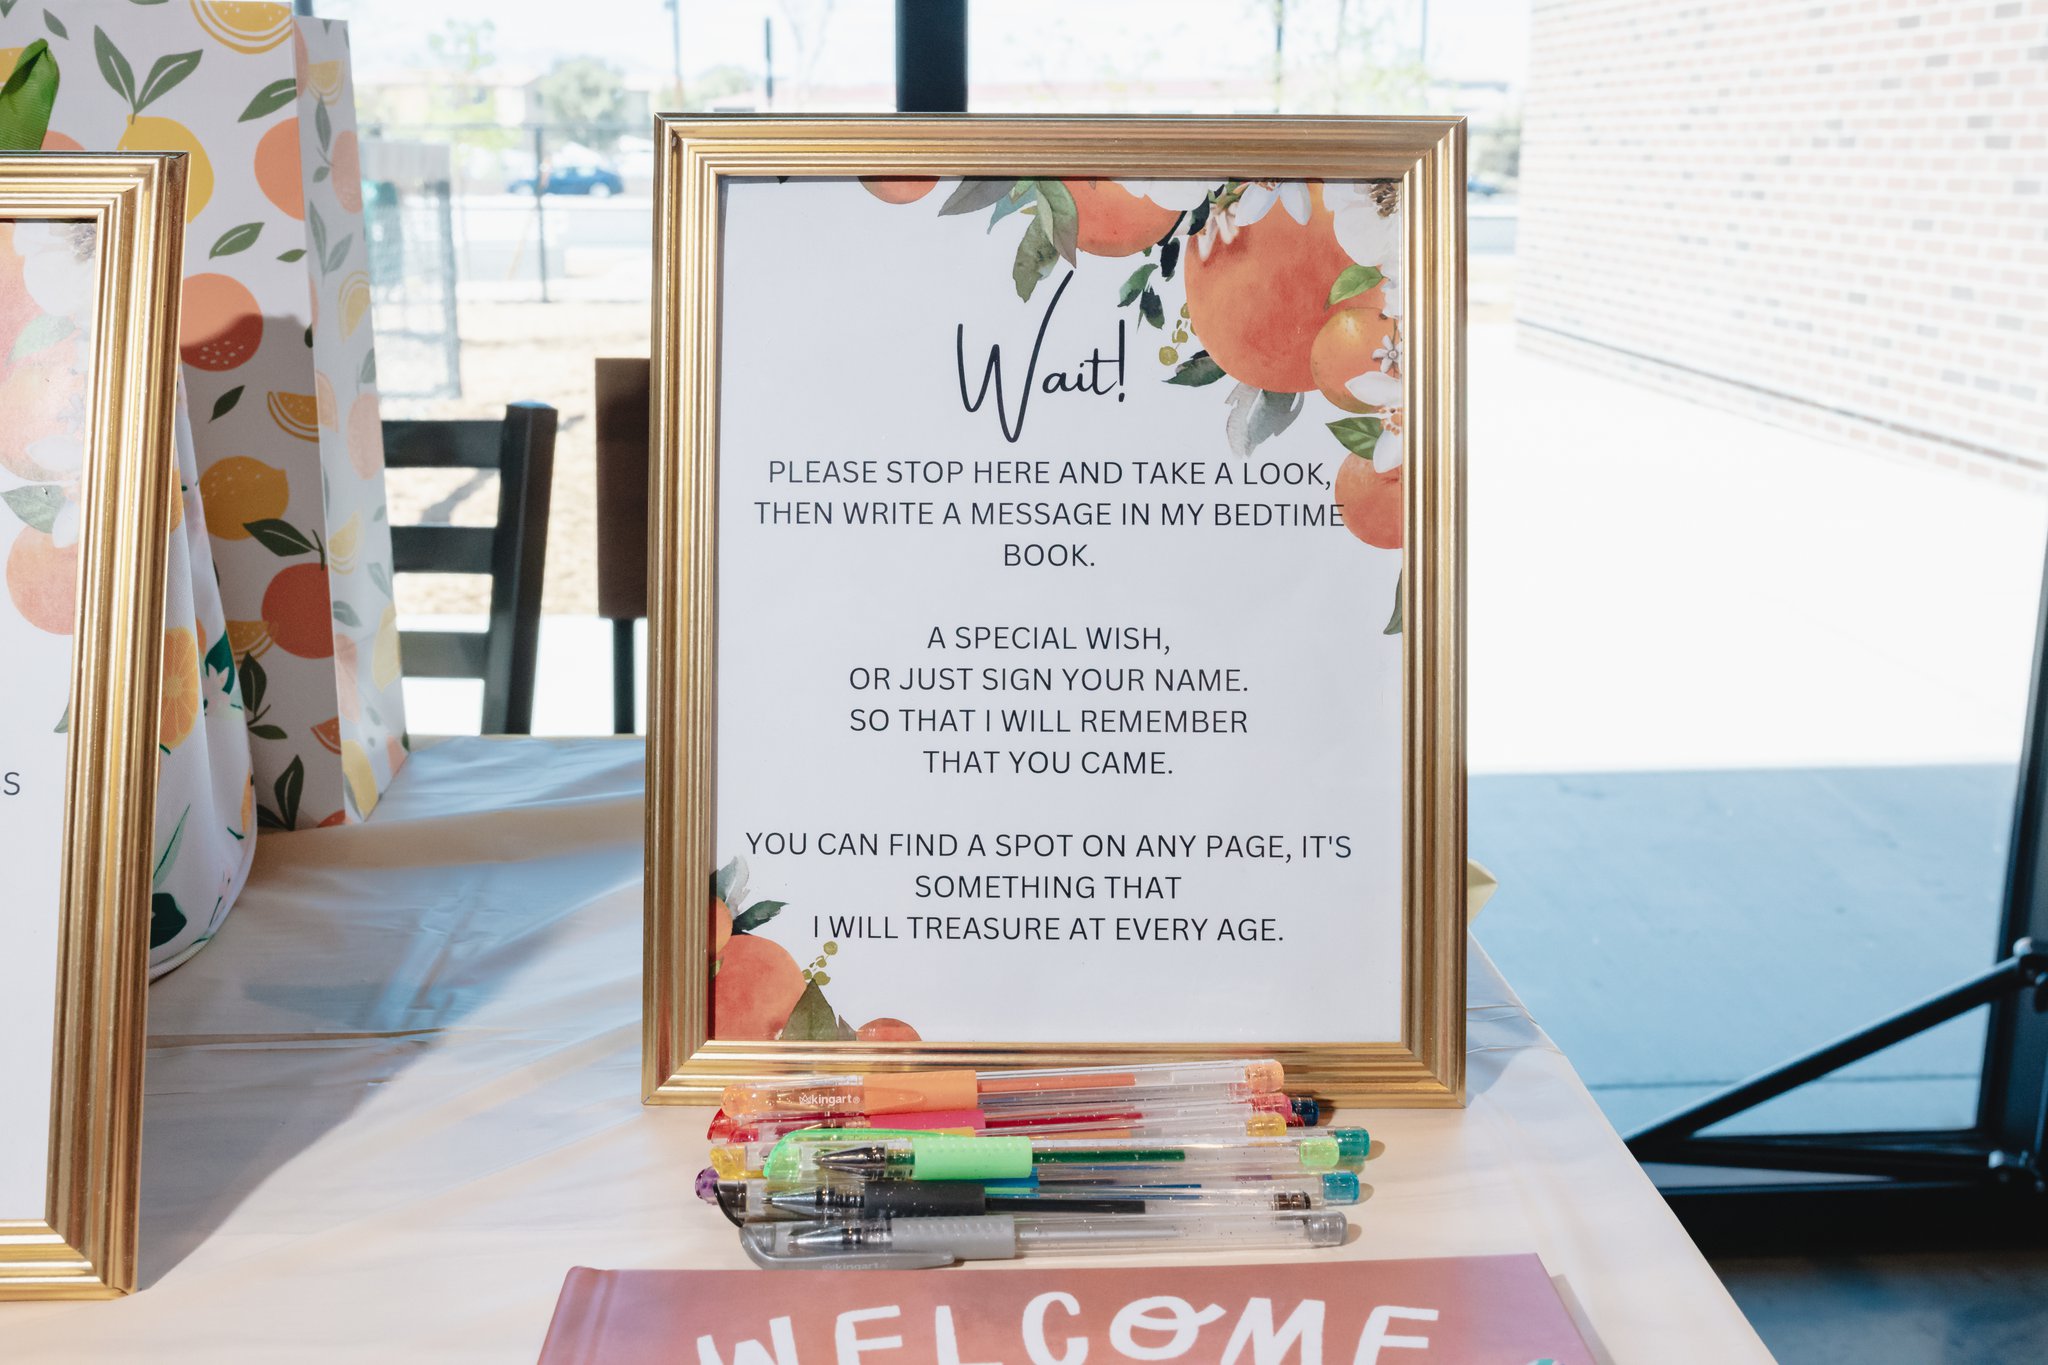 Wait!
PLEASE STOP HERE AND TAKE A LOOK,
THEN WRITE A MESSAGE IN MY BEDTIME
BOOK.
A SPECIAL WISH,
OR JUST SIGN YOUR NAME.
SO THAT I WILL REMEMBER
THAT YOU CAME.
YOU CAN FIND A SPOT ON ANY PAGE, IT'S
SOMETHING THAT
I WILL TREASURE AT EVERY AGE.
kingart®
kingart
WELCOME